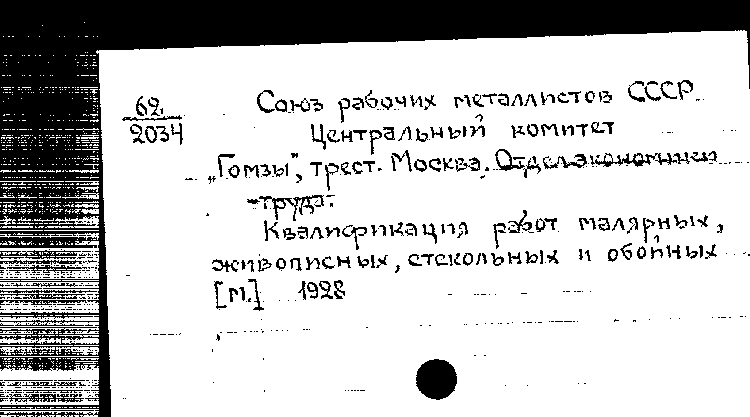 62.
2034
Союз рабочих металлистов СССР.
Центральный комитет
„Гомзы", трест. Москва. Отдел экономики
труда.
Квалификация работ малярных,
живописных, стекольных и обойных
[М.] 1928